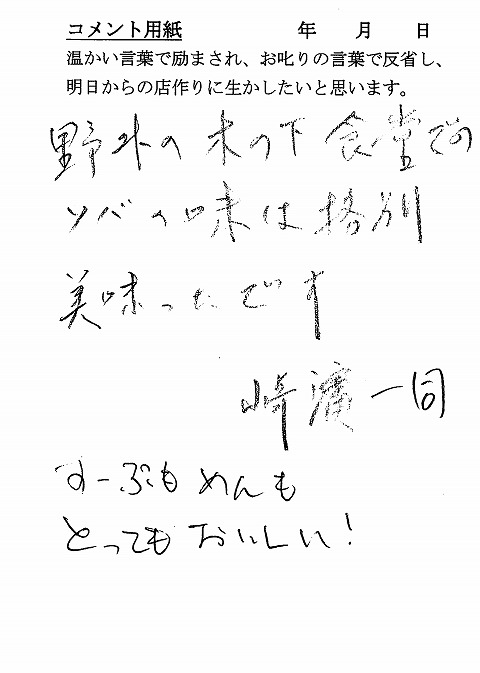 コメント用紙 年 月 日
温かい言葉で励まされ、お叱りの言葉で反省し、
明日からの店作りに生かしたいと思います。
野外の木の下食堂での
ソバの味は格別
美味ったです
崎濱一同
すーぷも めんも
とっても おいしい!